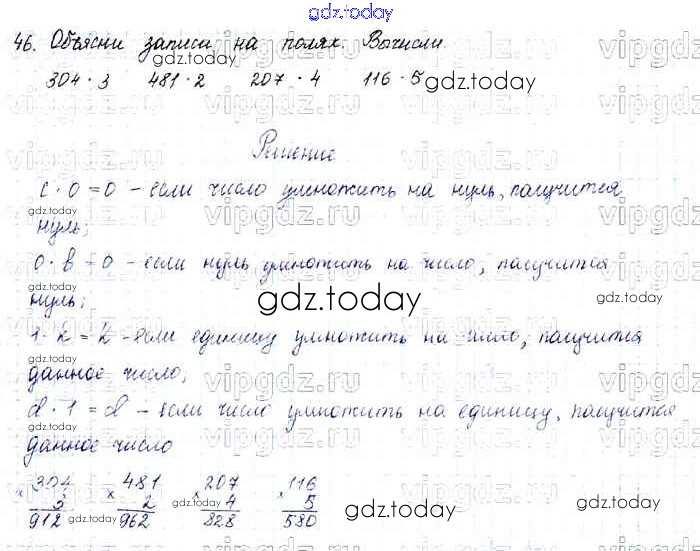 gdz.today
46. Объясни записи на полях. Вычисли.
304 · 3 481 · 2 207 · 4 116 · 5
Решение
c · 0 = 0 – если число умножить на нуль, получится
нуль;
0 · b = 0 – если нуль умножить на число, получится
нуль;
1 · k = k – если единицу умножить на число, получится
данное число;
d · 1 = d – если число умножить на единицу, получится
данное число
× 304 × 481 × 207 × 116
3 2 4 5
912 962 828 580
gdz.today
vipgdz.ru